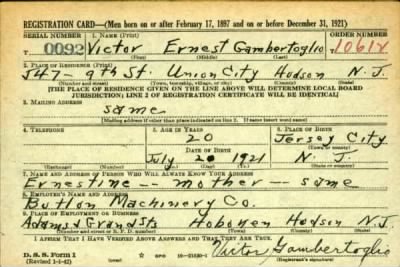 REGISTRATION CARD—(Men born on or after February 17, 1897 and on or before December 31, 1921)
SERIAL NUMBER 1. NAME (Print) ORDER NUMBER
0092 Victor Ernest Gambertoglio 10618
(First) (Middle) (Last)
2. PLACE OF RESIDENCE (Print)
547 - 9th St. Union City Hudson N.J.
(Number and street) (Town, township, village, or city) (County) (State)
[THE PLACE OF RESIDENCE GIVEN ON THE LINE ABOVE WILL DETERMINE LOCAL BOARD
JURISDICTION; LINE 2 OF REGISTRATION CERTIFICATE WILL BE IDENTICAL]
3. MAILING ADDRESS
same
[Mailing address if other than place indicated on line 2. If same insert word same]
4. TELEPHONE 5. AGE IN YEARS 6. PLACE OF BIRTH
20 Jersey City
DATE OF BIRTH (Town or county)
July 20 1921 N.J.
(Exchange) (Number) (Mo.) (Day) (Yr.) (State or country)
7. NAME AND ADDRESS OF PERSON WHO WILL ALWAYS KNOW YOUR ADDRESS
Ernestine -- mother -- same
8. EMPLOYER'S NAME AND ADDRESS
Button Machinery Co.
9. PLACE OF EMPLOYMENT OR BUSINESS
Adams & Grand Sts Hoboken Hudson N.J.
(Number and street or R. F. D. number) (Town) (County) (State)
I AFFIRM THAT I HAVE VERIFIED ABOVE ANSWERS AND THAT THEY ARE TRUE.
D. S. S. Form 1
(Revised 1-1-42) GPO 16-21630-1 Victor Gambertoglio